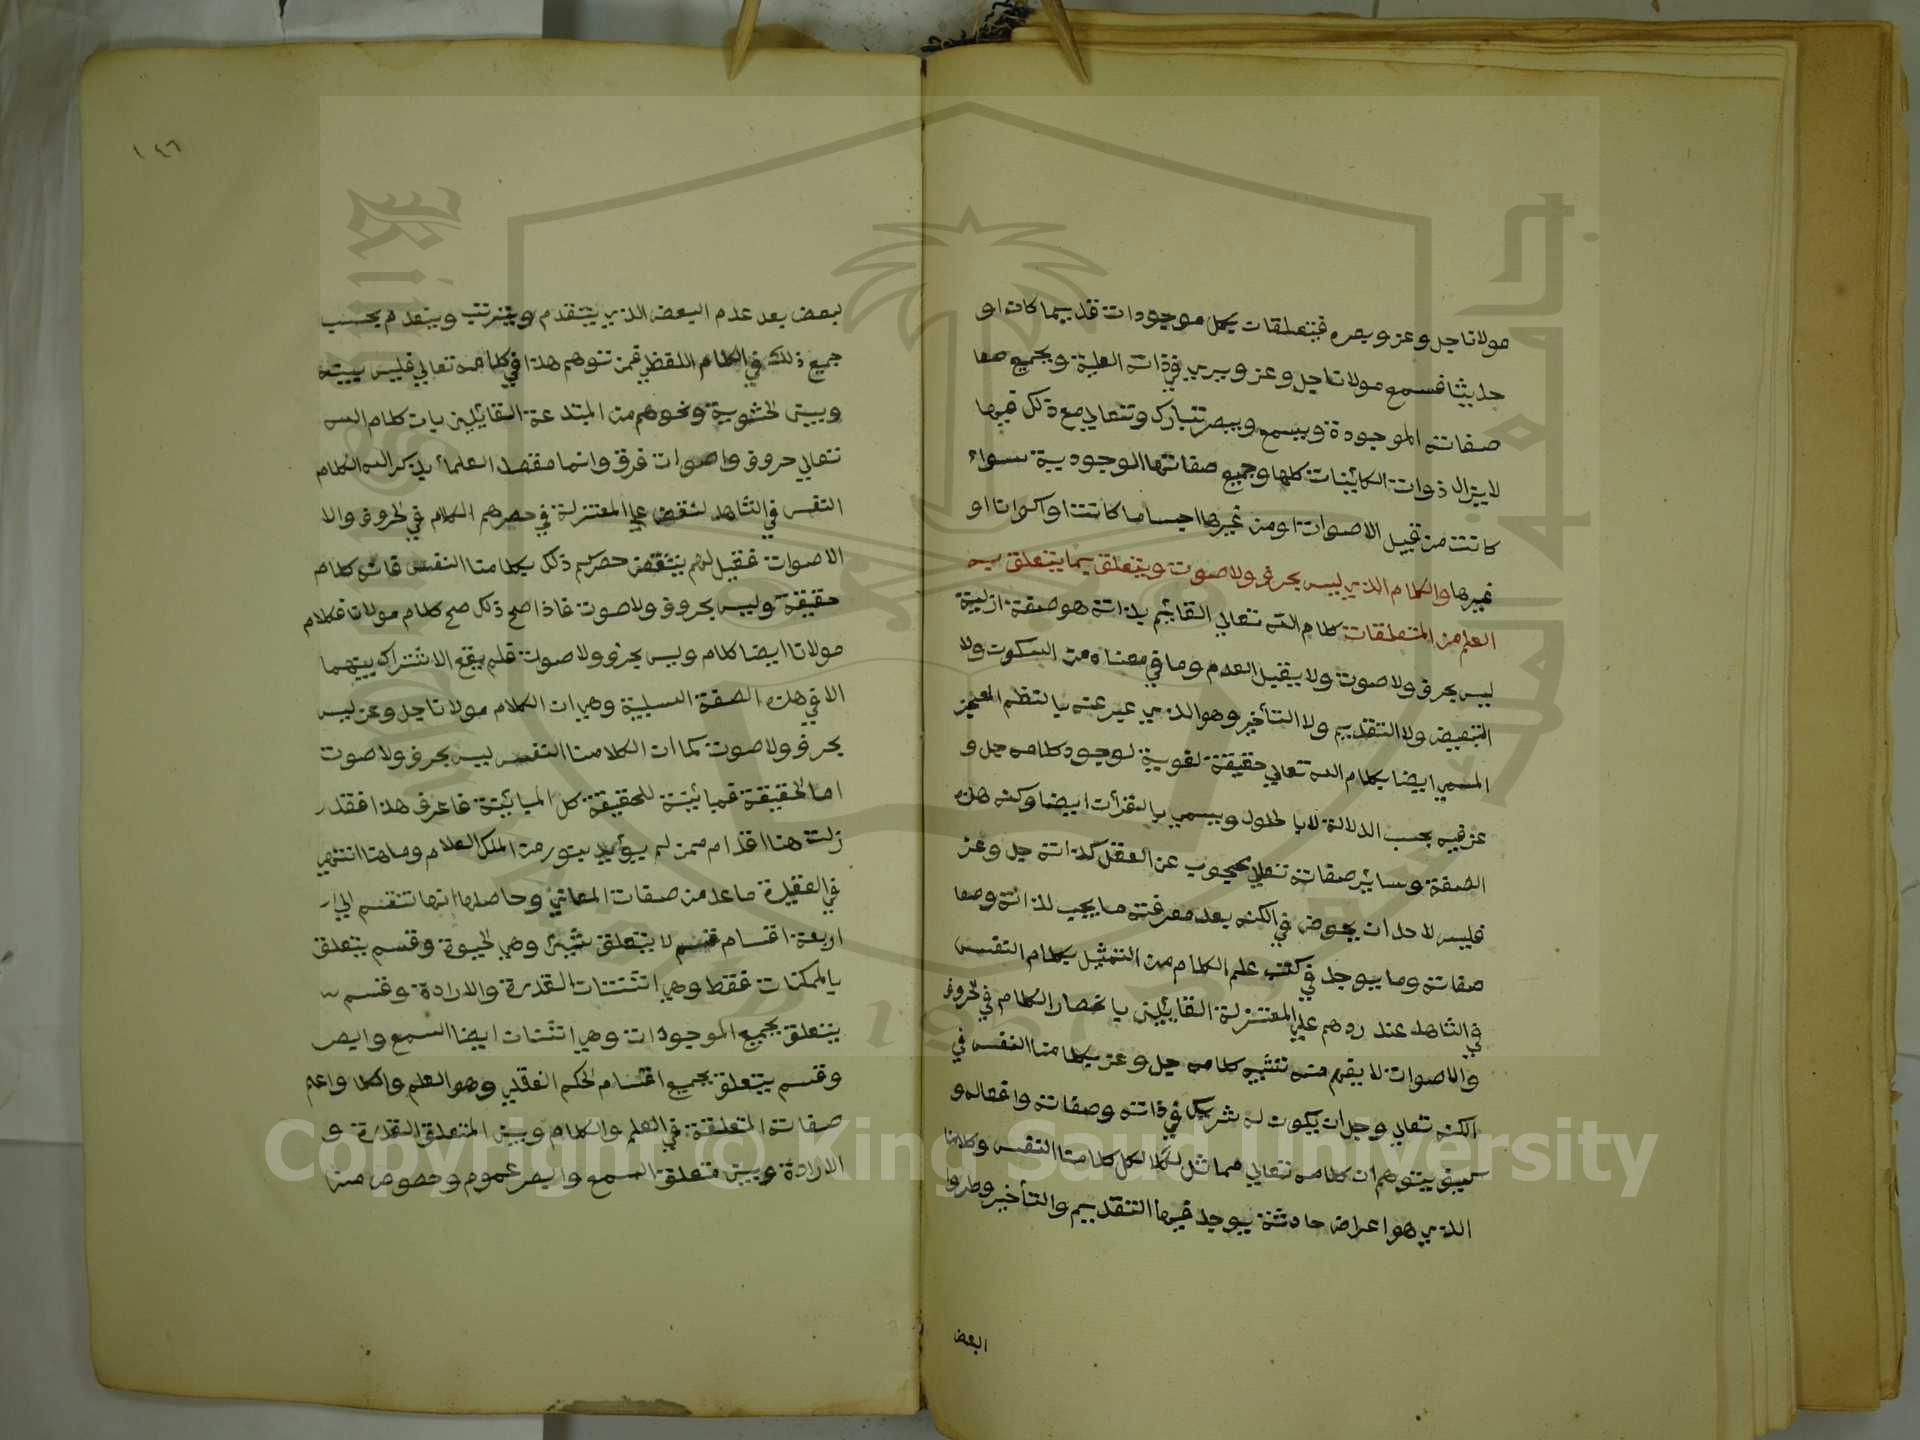 مولانا جل وعز وبصره فيتعلقات بكل موجودات قديما كان او
حديثا فسمع مولانا جل وعز ويري في ذات العلية وبجميع صفا
صفاته الموجودة ويسمع ويبصر تبارك وتعالي مع ذلك فيها
لا يزال ذوات الكائنات كلها وجميع صفاتها الوجودية سواء
كانت من قبيل الاصوات او من غيرها اجساما كانت او اكوانا او
غيرها والكلام الذي ليس بحرف ولا صوت ويتعلق بما يتعلق به
العلم من المتعلقات كلام الله تعالي القائم بذاته هو صفة ازلية
ليس بحرف ولا صوت ولا يقبل العدم وما في معناه من السكوت ولا
التبعيض ولا التقديم ولا التأخير وهو الذي عبر عنه بالنظم المعجز
المسمي ايضا بكلام الله تعالي حقيقة لغوية لوجود كلامه جل و
عز فيه بحسب الدلالة لا بالحلول ويسمي بالقرأن ايضا وكنه هذه
الصفة وساير صفاته تعالي محجوب عن العقل كذاته جل وعز
فليس لاحد ان يخوض في الكنه بعد معرفته ما يجب لذاته وصفا
صفاته وما يوجد في كتب علم الكلام من التمثيل بكلام النفس
في الشاهد عند ردهم علي المعتزلة القائلين بانحصار الكلام في الحروف
والاصوات لا يفهم منه تشبيه كلامه جل وعز بكلامنا النفس في
الكنه تعالي وجل ان يكون له شريك في ذاته وصفاته وافعاله و
كيف يتوهم ان كلامه تعالي مماثل لكلامنا النفس وكلامنا
الذي هو اعراض حادثة يوجد فيها التقديم والتأخير وطروا
البعض
١٤٦
لبعض بعد عدم البعض الذي يتقدم ويترتب وينعدم بحسب
جميع ذلك في الكلام اللفظي فمن توهم هذا في كلامه تعالي فليس بينه
وبين الحشوية ونحوهم من المبتدعة القائلين بان كلام الله
تعالي حروف واصوات فرق وانما مقصد العلماء بذكر الله الكلام
النفس في الشاهد لنقض علي المعتزلة في حصرهم الكلام في الحروف والا
الاصوات فقيل لهم ينتقض حصركم ذلك بكلامنا النفس فانه كلام
حقيقة وليس بحروف ولا صوت فاذا صح ذلك صح كلام مولانا فكلام
مولانا ايضا كلام وليس بحرف ولا صوت فلم يقع الاشتراك بينهما
الا في هذه الصفة السلبية وهي ان الكلام مولانا جل وعز ليس
بحرف ولا صوت كما ان الكلامنا النفس ليس بحرف ولا صوت
اما الحقيقة فمباينة للحقيقة كل المباينة فاعرف هذا فقد
زلت هنا اقدام ممن لم يؤيد بنور من الملك العلام وماهنا انتهي
في العقيدة ما عد من صفات المعاني وحاصلها انها تنقسم الي ار
اربعة اقسام قسم لا يتعلق بشيئ وهي الحيوة وقسم يتعلق
بالممكنات فقط وهي اثنتان القدرة والارادة وقسم
يتعلق بجميع الموجودات وهي اثنتان ايضا السمع والبصر
وقسم يتعلق بجميع اقسام الحكم العقلي وهو العلم والكلا واعم
صفات المتعلقة في العلم والكلام وبين المتعلق القدرة و
الارادة وبين متعلق السمع والبصر عموم وخصوص منه
Copyright © King Saud University